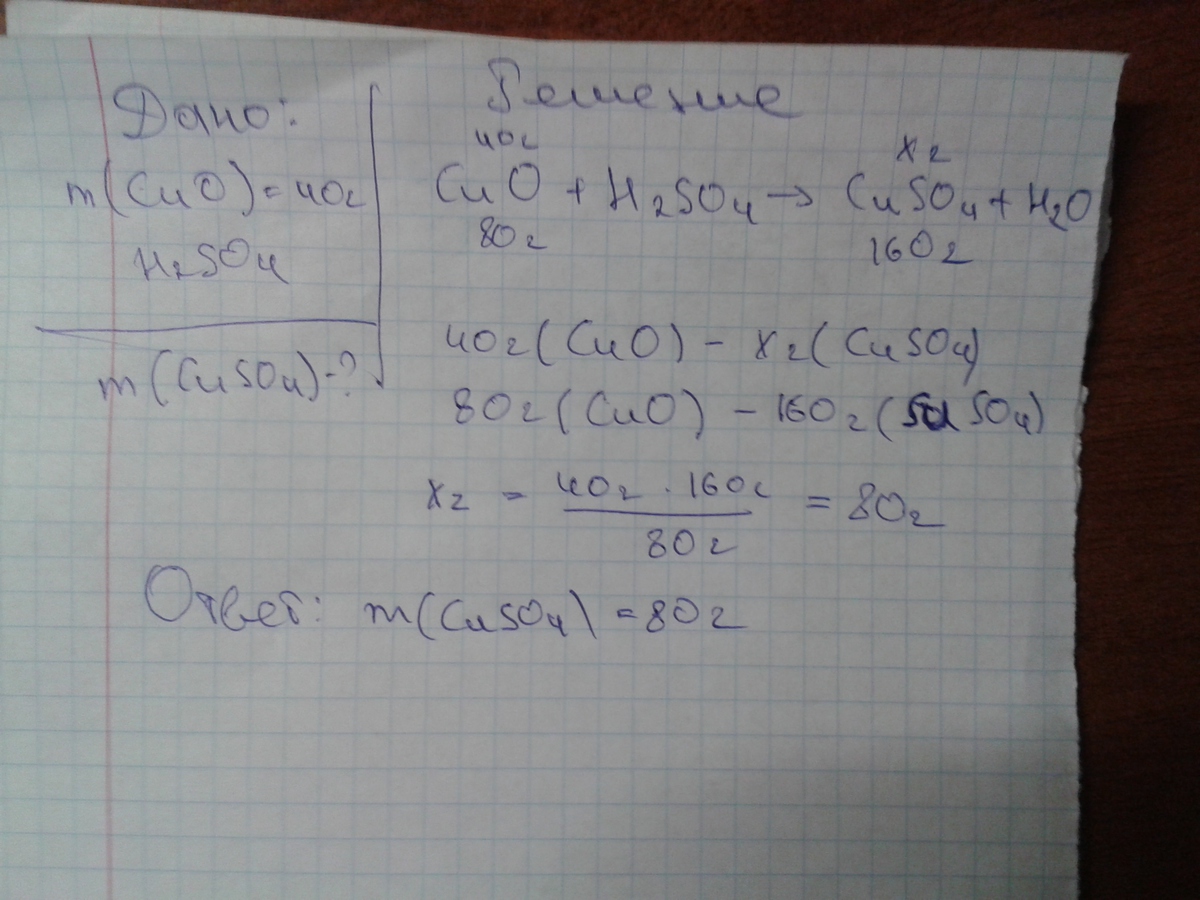 Дано:
m(CuO)=40г
H₂SO₄
m(CuSO₄)-?
Решение
40г xг
CuO + H₂SO₄ → CuSO₄ + H₂O
80г 160г
40г(CuO) - xг(CuSO₄)
80г(CuO) - 160г( SO₄)
xг = 40г · 160г / 80г = 80г
Ответ: m(CuSO₄) = 80г